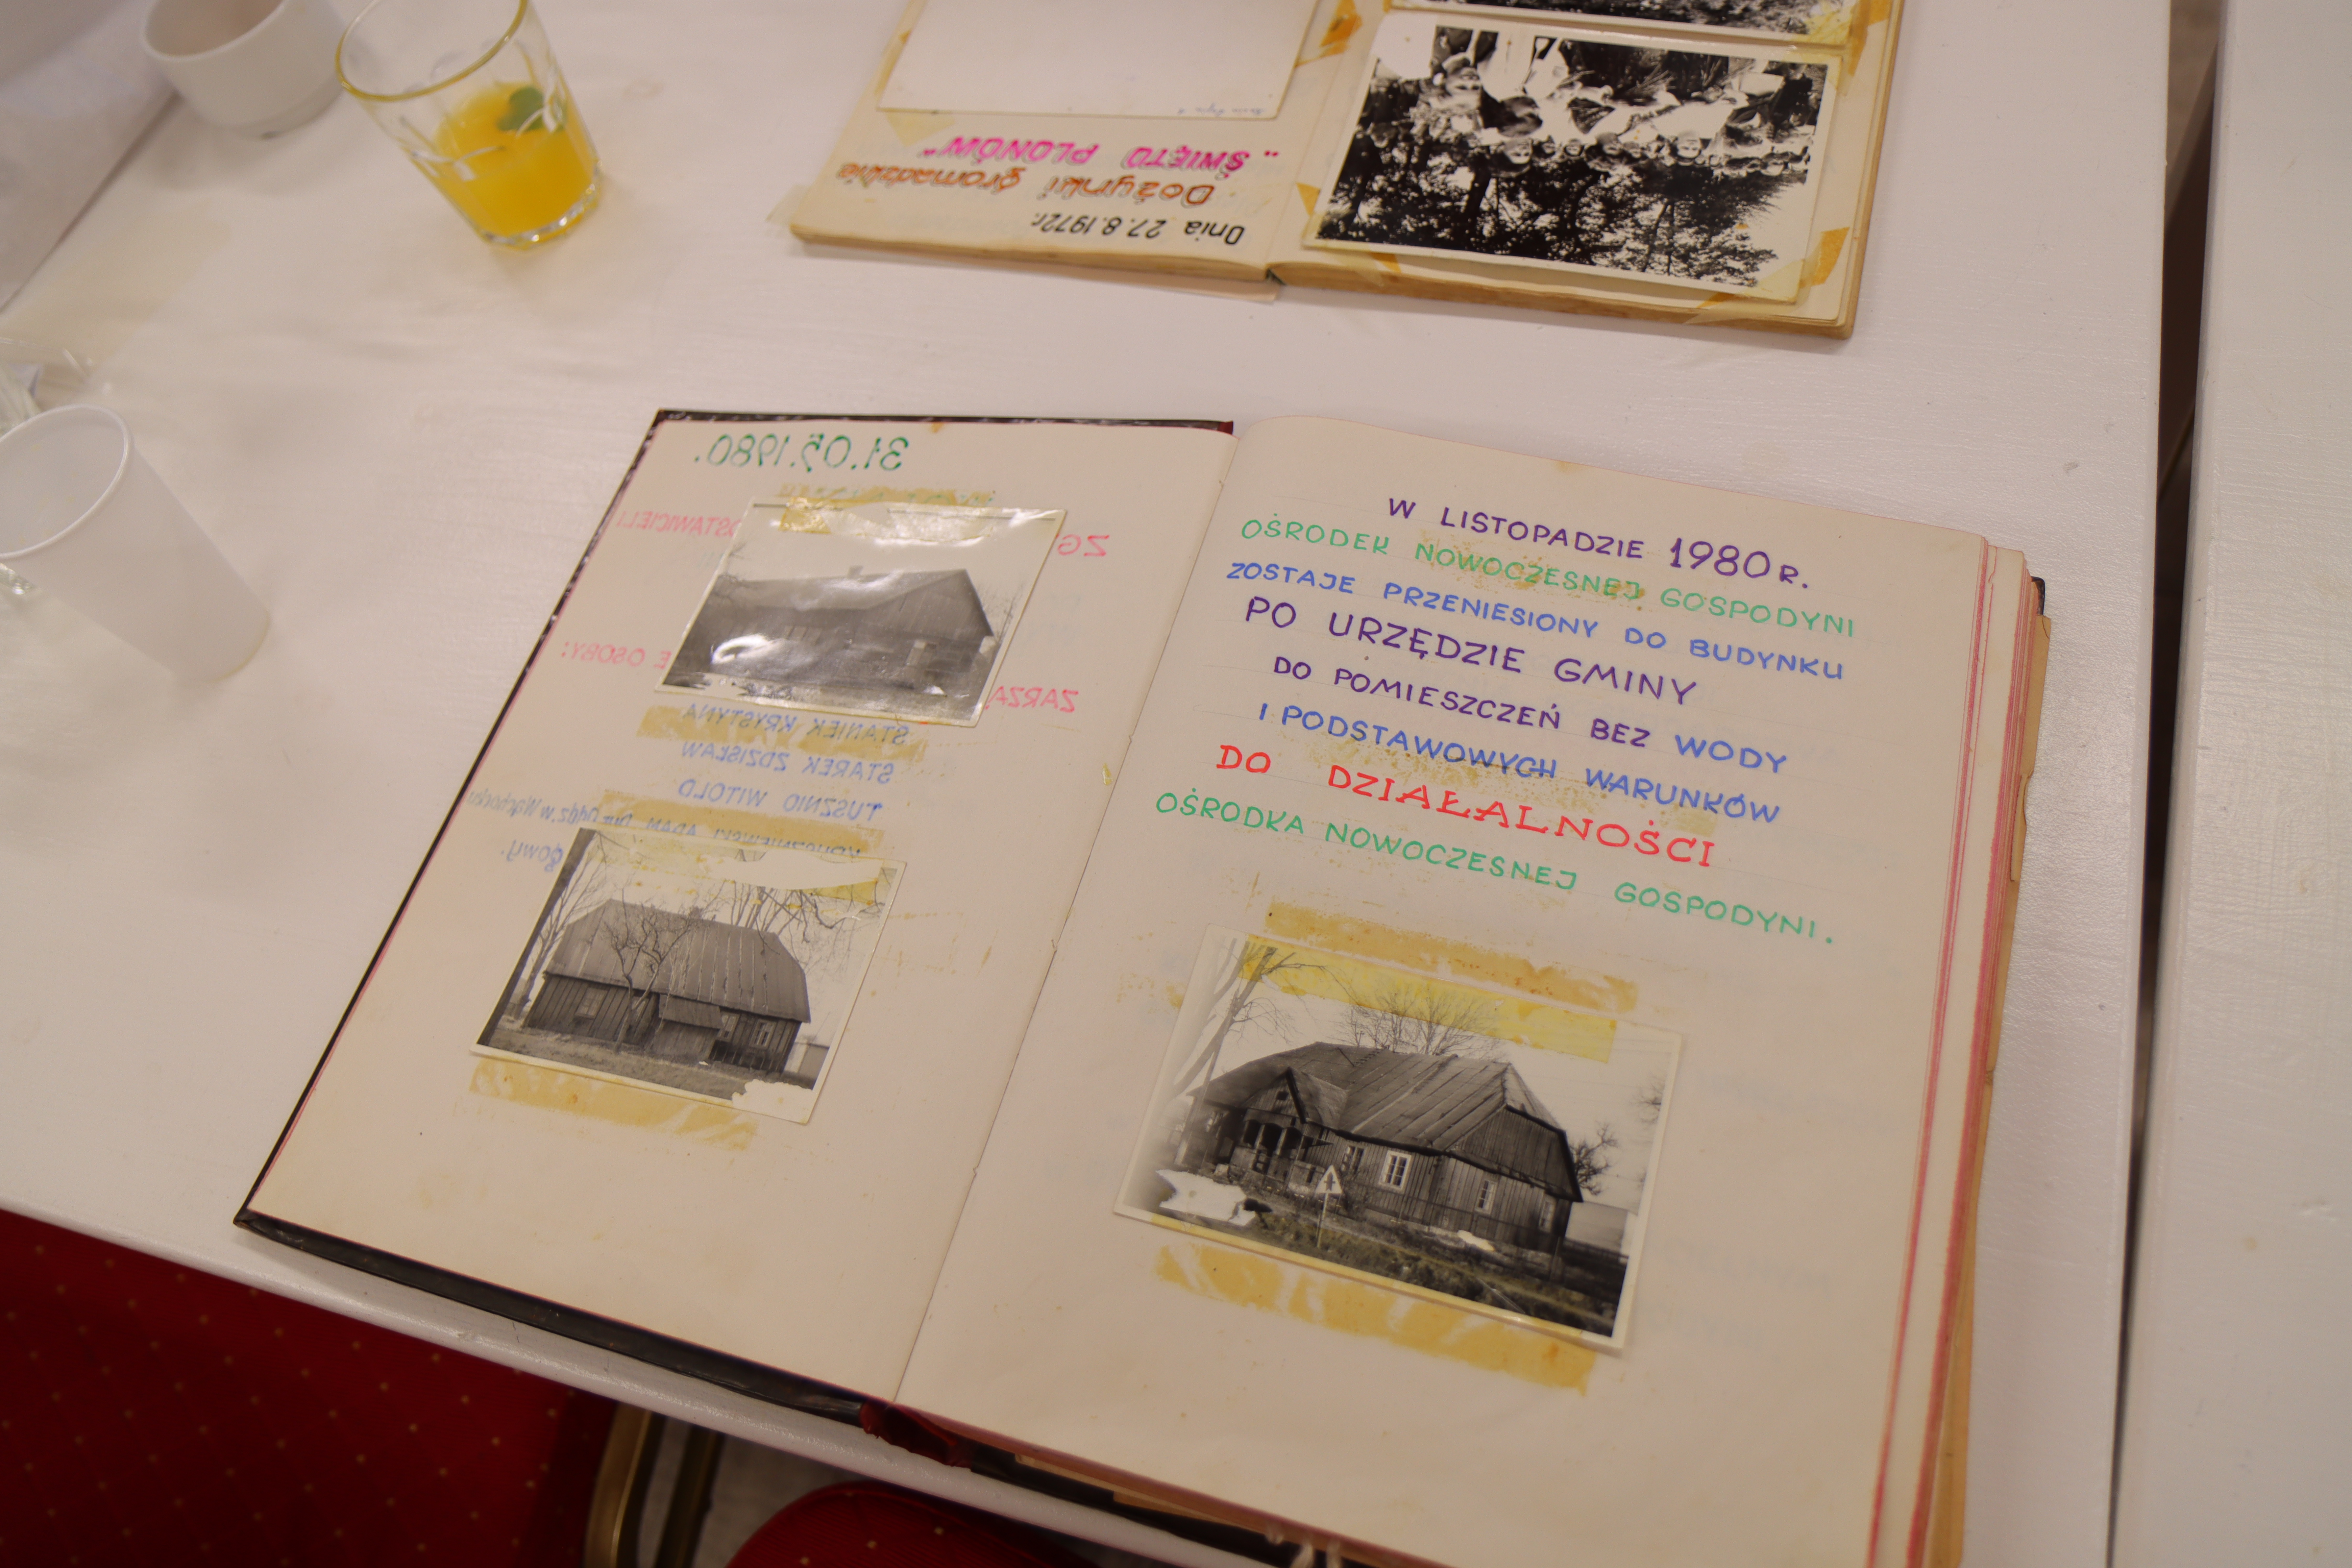 Dnia 27.8.1972r.
Dożynki gromadzkie
„ŚWIĘTO PLONÓW"
31.05.1980.
STAWICIELI
ZG
E OSOBY:
ZARZĄ
STANIEK KRYSTYNA
STAREK ZDZISŁAW
TUSZNIO WITOLD
ADAM Dyr. Oddz. w Wąchocku
gowy.
W LISTOPADZIE 1980 R.
OŚRODEK NOWOCZESNEJ GOSPODYNI
ZOSTAJE PRZENIESIONY DO BUDYNKU
PO URZĘDZIE GMINY
DO POMIESZCZEŃ BEZ WODY
I PODSTAWOWYCH WARUNKÓW
DO DZIAŁALNOŚCI
OŚRODKA NOWOCZESNEJ GOSPODYNI.